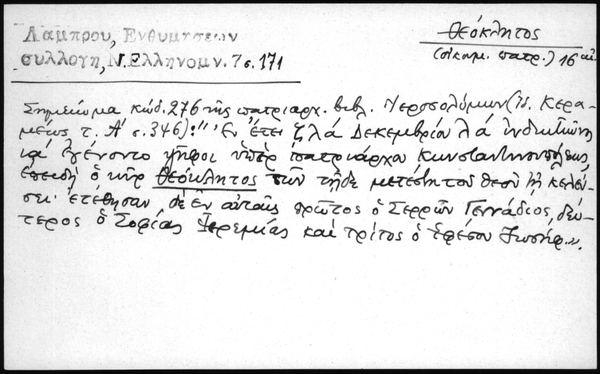 Λάμπρου, Ενθυμήσεων
συλλογή, Ν.Ελληνομν. 7 σ. 171
Θεόκλητος
(οἰκουμ. πατρ.) 16 αἰ.
Σημείωμα κώδ. 276 τῆς πατριαρχ. βιβλ. Ἱεροσολύμων (Π. Κερα-
μέως τ. Α' σ. 346): "Ἐν ἔτει ζλα Δεκεμβρίου λα ἰνδικτιῶνος
ια ἐγένοντο ψῆφοι ὑπὲρ πατριάρχου Κωνσταντινουπόλεως,
ἐπειδὴ ὁ κὺρ Θεόκλητος τῶν τῇδε μετέστη τοῦ θεοῦ τῇ κελεύ-
σει· ἐτέθησαν δὲ ἐν αὐταῖς πρῶτος ὁ Σερρῶν Γεννάδιος, δεύ-
τερος ὁ Σοφίας Ἱερεμίας καὶ τρίτος ὁ Ἐφέσου Ἰωσήφ».